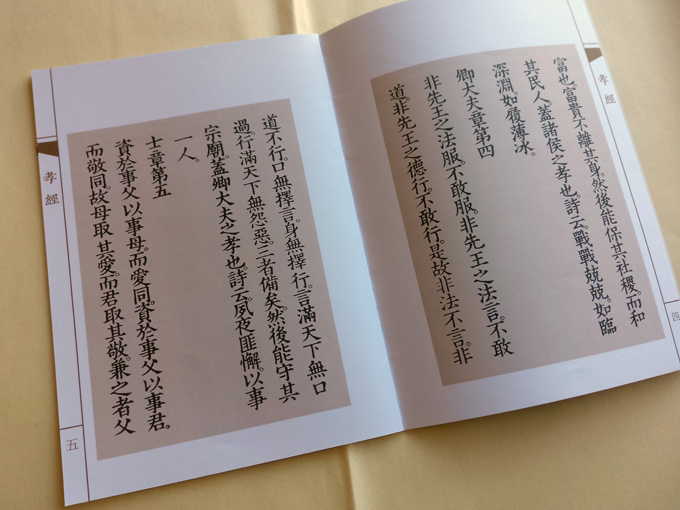 孝經
富也。富貴不離其身。然後能保其社稷。而和
其民人。蓋諸侯之孝也。詩云。戰戰兢兢。如臨
深淵。如履薄冰。
卿大夫章第四
非先王之法服。不敢服。非先王之法言。不敢
道。非先王之德行。不敢行。是故非法不言。非
四
道不行。口無擇言。身無擇行。言滿天下無口
過。行滿天下無怨惡。三者備矣。然後能守其
宗廟。蓋卿大夫之孝也。詩云。夙夜匪懈。以事
一人。
士章第五
資於事父以事母。而愛同。資於事父以事君。
而敬同。故母取其愛。而君取其敬。兼之者父
孝經
五